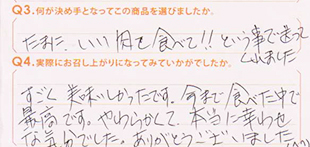 Q3.何が決め手となってこの商品を選びましたか。
たまに、いい肉を食べて!! という事で送って
くれました
Q4.実際にお召し上がりになってみていかがでしたか。
すごく美味しかったです。今まで食べた中で
最高です。やわらかくて、本当に幸わせ
な気分でした。ありがとうございました